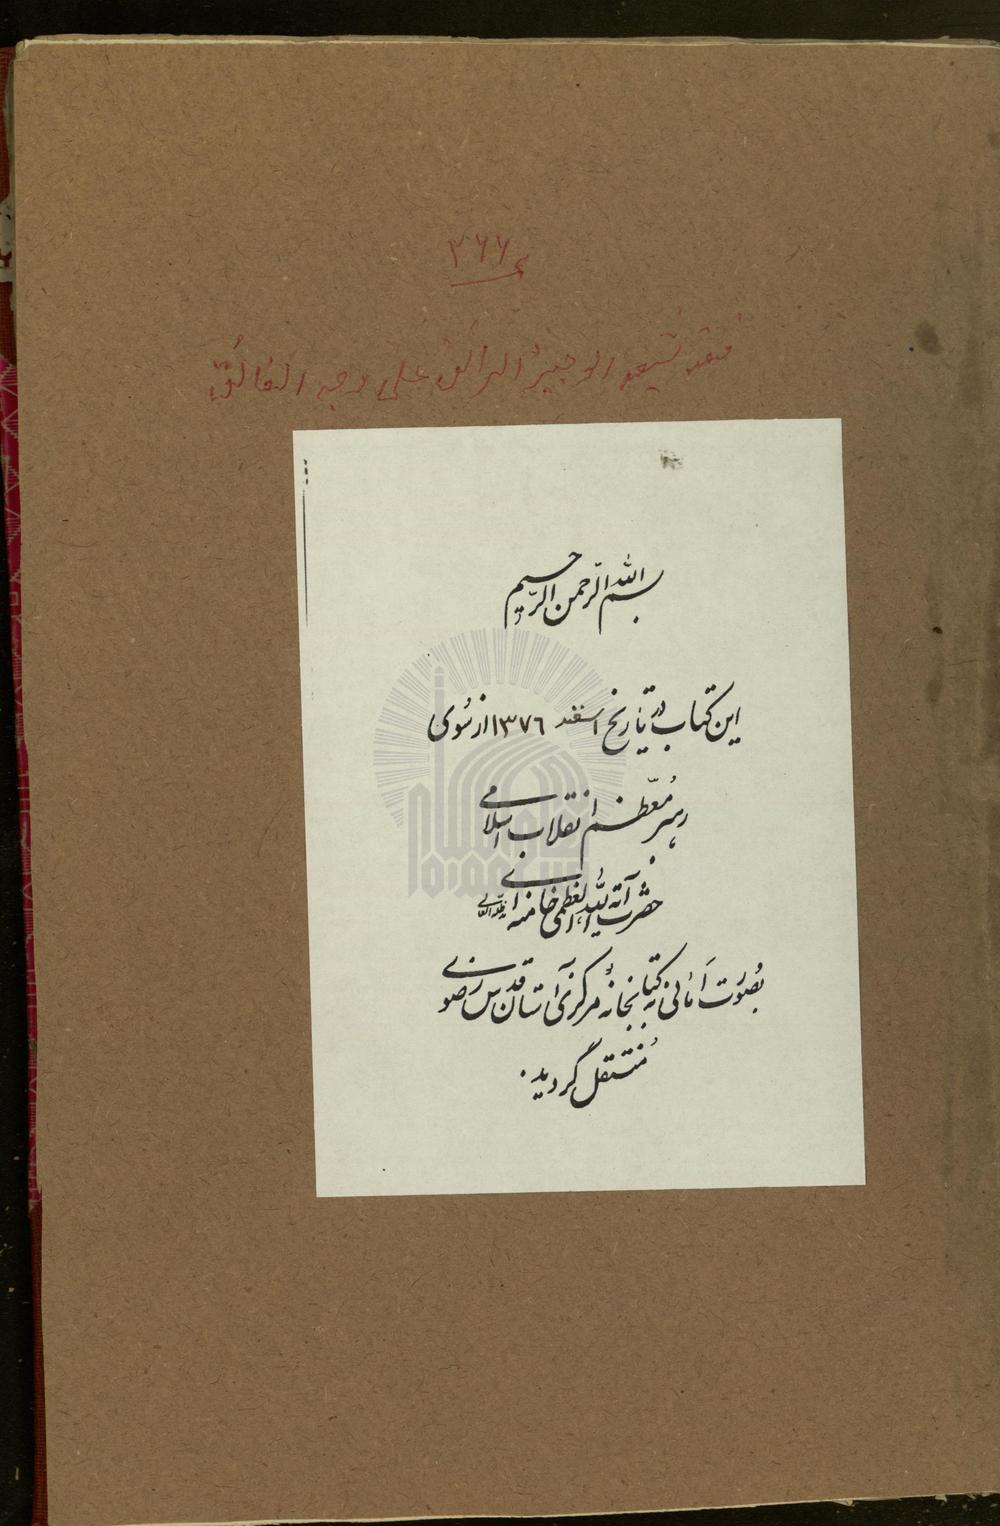 ۳۶۶
الوجیز الرائق علی وجه الفائق
بسم الله الرحمن الرحیم
این کتاب در تاریخ اسفند ۱۳۷۶ از سُوی
رهبر معظّم انقلاب اسلامی
حضرت آیة الله العظمی خامنه ای مدظله العالی
بصُورت اَمانی به کتابخانهٔ مرکزی آستان قدس رضوی
مُنتقل گردید.